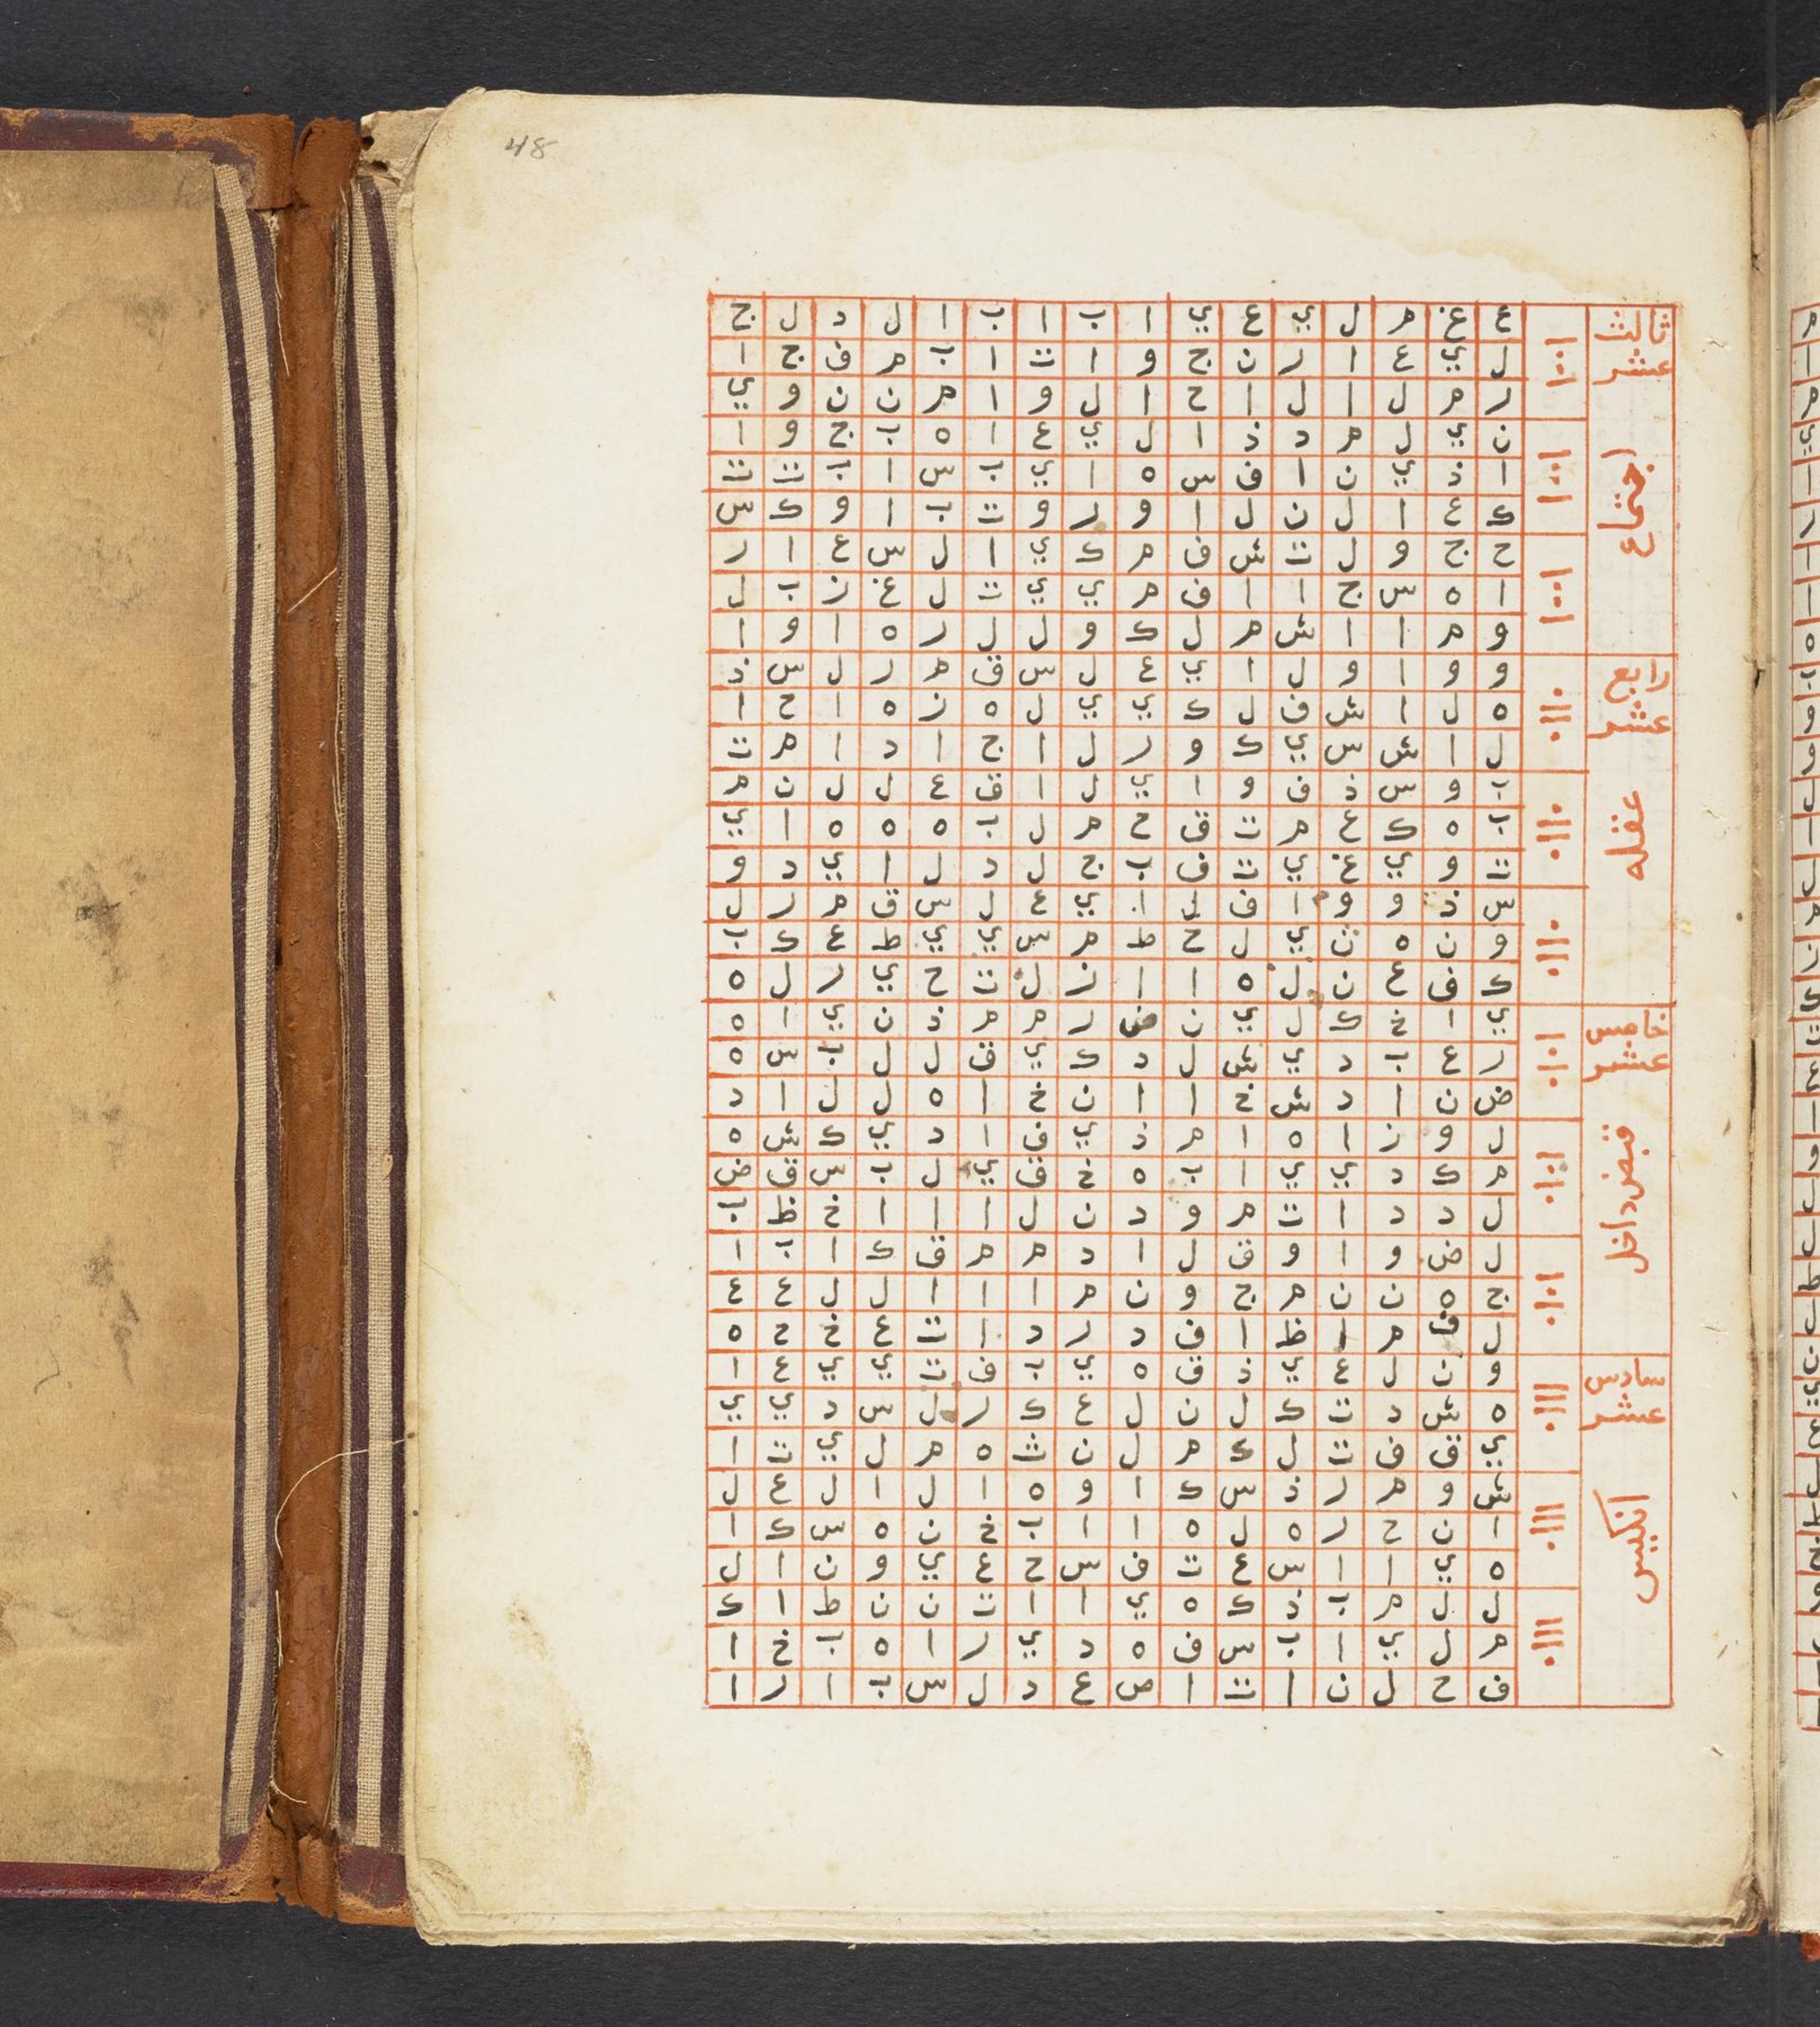 48
ثالث عشر
اجتماع
ع غ م ل ي ع ي ا ب ا ب ا ل د ل ج
ل ي ع ا ر ن ج و ا ث ا ب م ف ج ا
ر م ل ا ل ا ح ا ل و ا م ن ن و ي
ن ي ل م د ذ ا ل ي ع ا ه ب ج و ا
ا ذ ي ن ا ف س ه ا ي ب س ا ب ت ت
ك ع ا ل ن ل ا و ر و ت ب ا و ك س
ح ج و ل ت ش ف م ك ي ا ل س ع ا ر
ا ه س ج ا ا ف م ي ي ت ل غ ز ب ل
و م ا ا ش م ل ك و ل ل ر ه ا و ا
رابع عشر
عقله
و و ا و ل ا ي ع ل س ق م ر ل س ذ
ه ل ا ش ف ل ك ي ي ل ه ز ه ا ح ا
ل ا ش س ي ك و ر ل ا ج ا د ا م ت
ب و س ذ ف و ا ي ل ا ق ع ل ل ن م
ب ه ك ع م ت ق ح م ل ب ه ه ه ا ي
ت و ي غ ي ت ف ب ج ل د ل ا ي د و
س ذ و و ا ف ل ا ي ع ل س ق م ر ل
و ن ه ت ي ل ح ط م س ي ي ط ع ك ب
ك ف ع ن ل ه ا ا ز ل ت ح ي ر ل ه
خامس عشر
قبض داخل
ي ا خ ك ل ي ن ض ر م م ذ ن ي ا ه
ر ع ب د ي ش ل د ك ي ق ل ل ب س ه
ض ن ا د ش خ ا ا ن خ ا ه ل ل ا د
ل و ز ا ه ا م ذ ي ف ا د ي ك ش ه
م ك د ي ي ا ب ه خ ق ي ل ب س ق ض
ل د د ا ت م و د ن ل ا ا ا خ ظ ب
ل ض و ا و ق ل ا د م م ق ك ا ب ا
ج ه ن ن م ج و ن م ا ا ا ل ل ع ع
ل ف م ا ظ ا ف د ر د ا ت ع خ ح ه
سادس عشر
انكيس
و ن ل ع ي ذ ق ه ي ب ف ت ي ي ع ا
ه ش د ت ك ل ن ل ع ك ر ل س د ي ي
ي ق ف ت ل ك م ل ن ث ه م ل ي ت ا
ش و م ر ذ س ك ا و ه ا ل ا ل ع ل
ا ن ح ر ه ل ه ا ا ب خ ن ه س ك ا
ه ي ا ا س ع ت ف س ح ع ي و ن ا ل
ل ل م ب ذ ك ه ي ا ا ت ن ن ط ا ك
م ل ي ا ب س ف ه د ي ر ا ه ب خ ا
ف ح ل ن ا ت ا ص ع د ل س ب ا ر ا